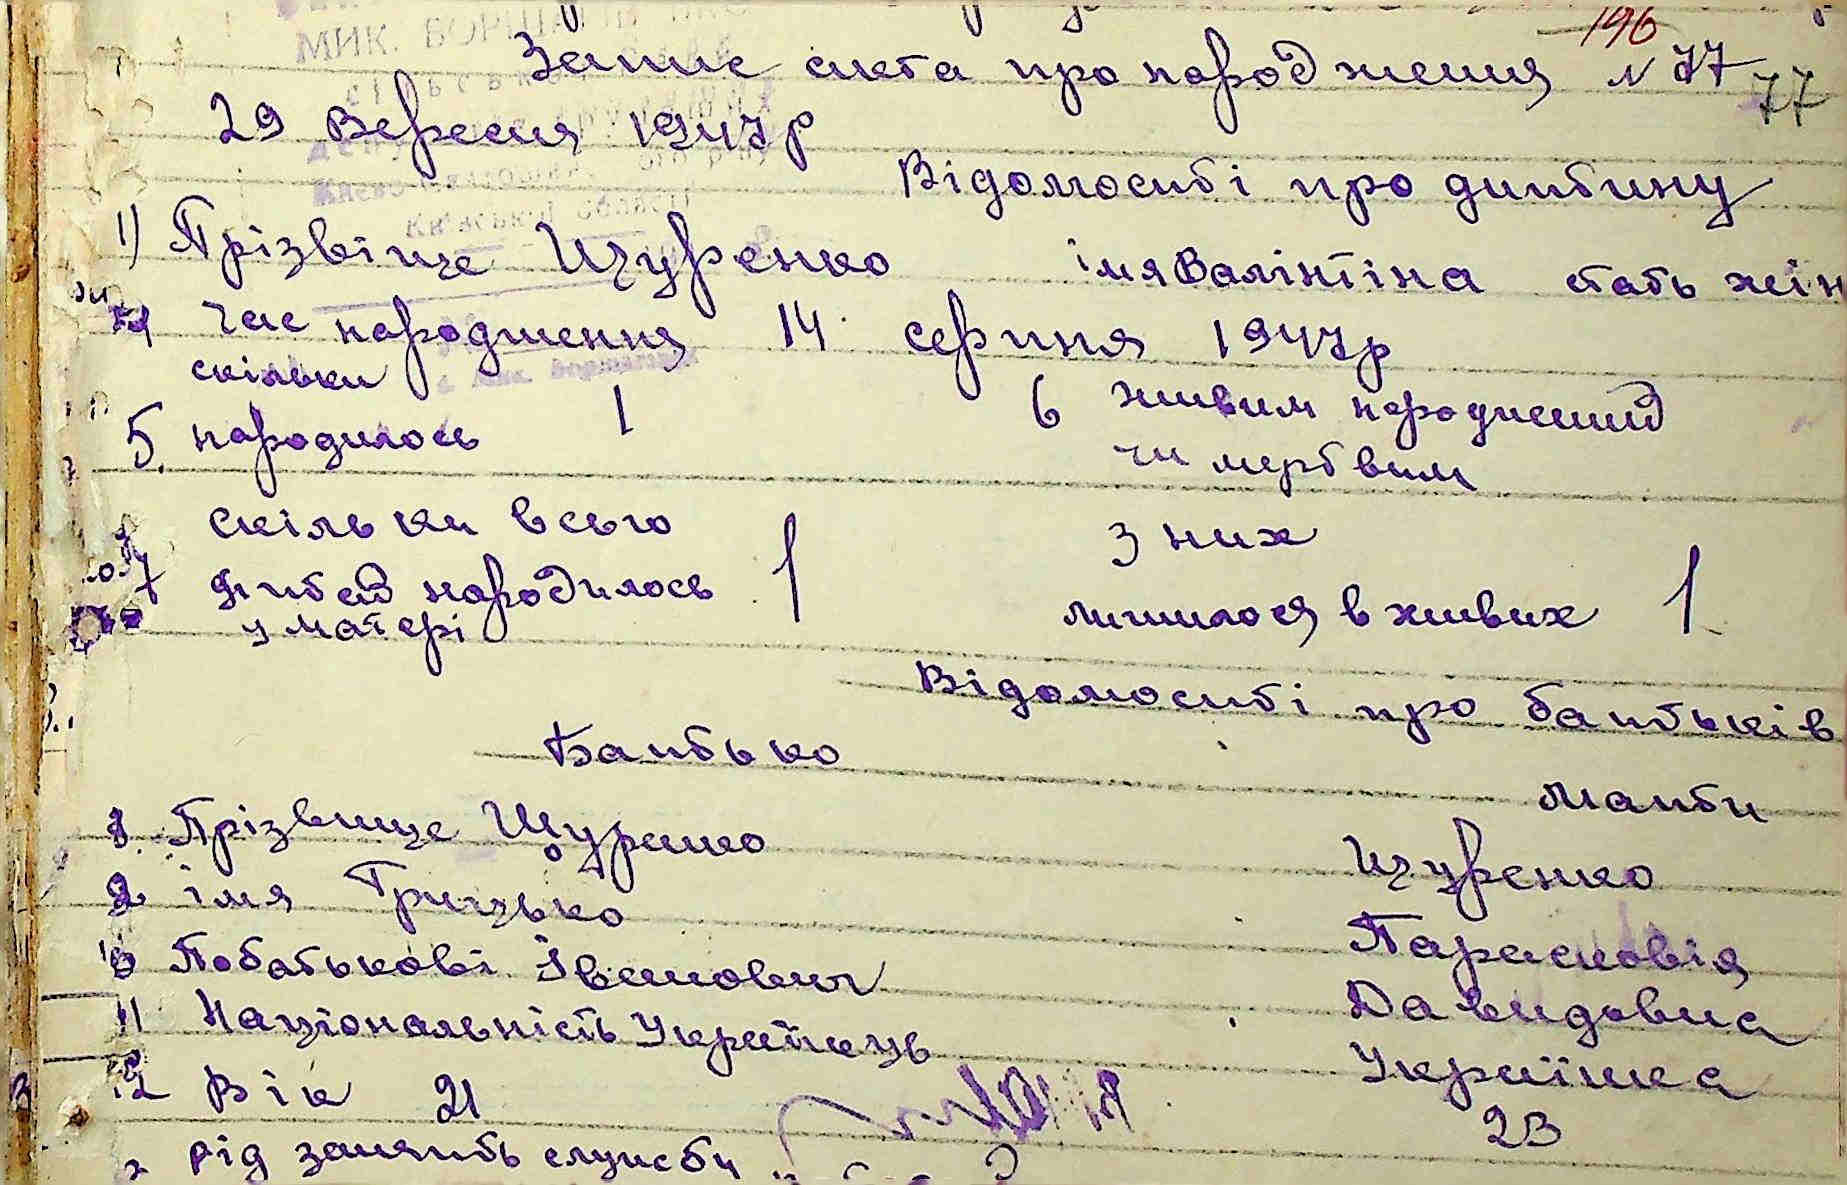 196
Запис акта про народження N 77 77
29 Вересня 1947р
Відомості про дитину
1) Прізвіще Щуренко імя Валінтіна стать жін
4 час народження 14 серпня 1947р
5. скільки народилось 1
6 живим народжений чи мертвим
7 скільки всього дитей народилось у матері 1
з них лишилося в живих 1
Відомості про батьків
Батько
Мати
8. Прізвище Щуренко Щуренко
9 імя Грицько Парасковія
10 Побатькові Іванович Давидовна
11 Національність Українець Українка
12 Вік 21 23
рід занять служби